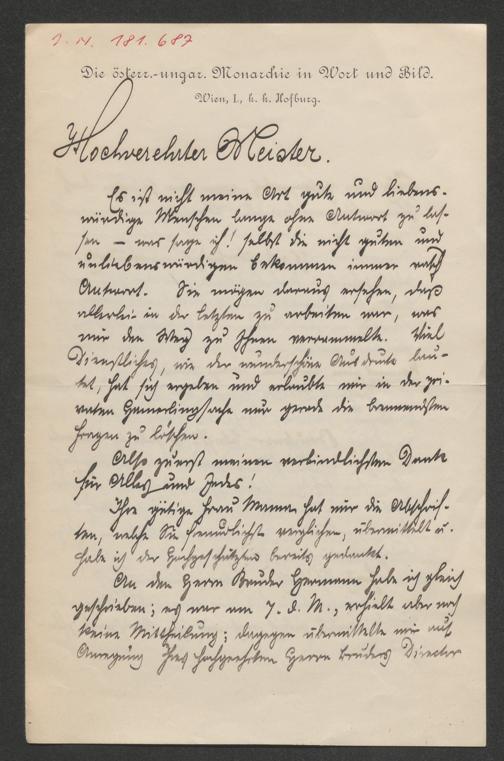 J. N. 181.687
Die österr.-ungar. Monarchie in Wort und Bild.
Wien, I., k. k. Hofburg.
Hochverehrter Meister.
Es ist nicht meine Art gute und liebens-
würdige Menschen lange ohne Antwort zu las-
sen — was sage ich! selbst die nicht guten und
unliebenswürdigen bekommen immer rasch
Antwort. Sie mögen daraus ersehen, daß
allerlei in der letzten zu arbeiten war, was
mir den Weg zu Ihnen verrammelte. Viel
Dienstliches, wie der wunderschöne Ausdruck lau-
tet, hat sich ergeben und erlaubte mir in der pri-
vaten Hamerlingsache nur gerade die brennendsten
Fragen zu löschen.
Also zuerst meinen verbindlichsten Dank
für Alles und Jedes!
Ihre gütige Frau Mama hat mir die Abschrif-
ten, welche Sie freundlichst verglichen, übermittelt u.
habe ich der Hochgeschätzten bereits gedankt.
An den Herrn Bruder Hermann habe ich gleich
geschrieben; es war am 7. d. M., erhielt aber noch
keine Mittheilung; dagegen übermittelte mir auf
Anregung Ihres hochgeehrten Herrn Bruders Director